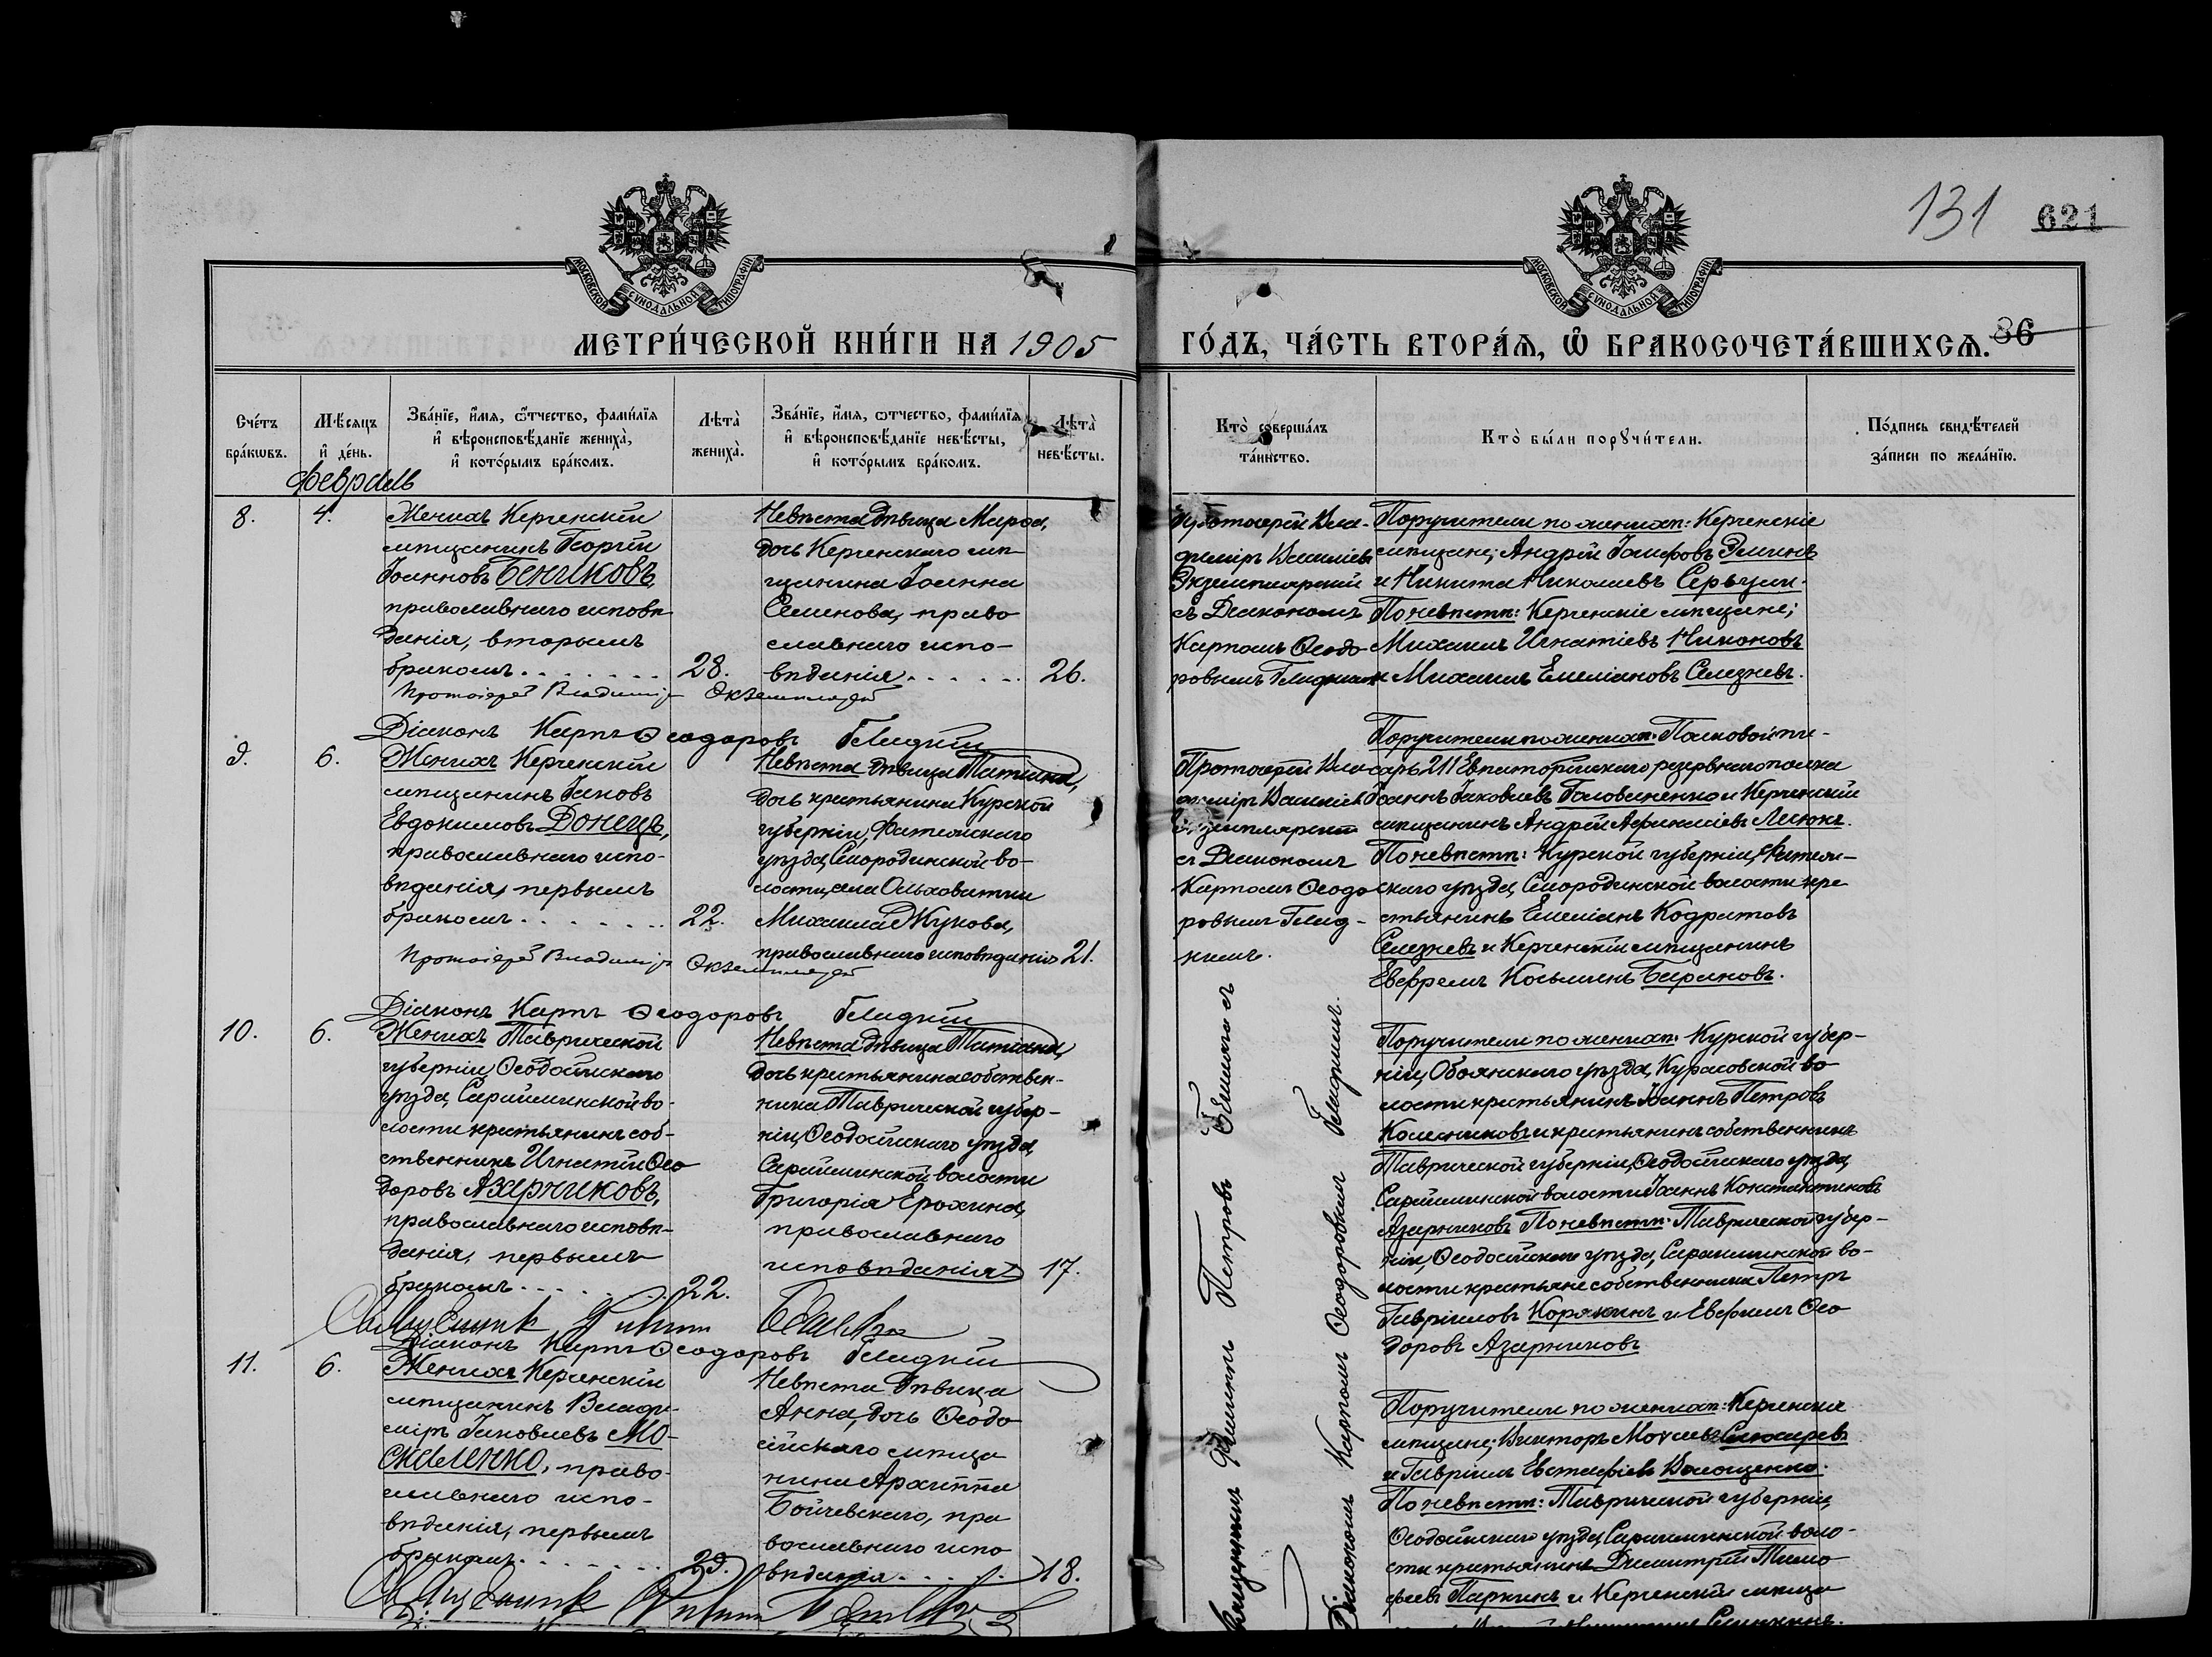 131 621
МОСКОВСКОЙ СУНОДАЛЬНОЙ ТИПОГРАФІИ
МОСКОВСКОЙ СУНОДАЛЬНОЙ ТИПОГРАФІИ
МЕТРИ́ЧЕСКОЙ КНИ́ГИ НА 1905
ГО́ДЪ, ЧА́СТЬ ВТОРА́Ѧ, Ѡ҆ БРАКОСОЧЕТА́ВШИХСѦ. 86
Сче́тъ бра́кѡвъ.
Мѣ́сяцъ и҆ де́нь.
Зва́нїе, и҆́мя, ѻ҆́тчество, фами́лїя и҆ вѣроисповѣ́данїе жениха̀, и҆ кото́рымъ бра́комъ.
Лѣта̀ жениха̀.
Зва́нїе, и҆́мя, ѻтчество, фами́лїя и҆ вѣроисповѣ́данїе невѣ́сты, и҆ кото́рымъ бра́комъ.
Лѣта̀ невѣ́сты.
Кто̀ соверша́лъ та́инство.
Кто̀ бы́ли порꙋчи́тели.
По́дпись свидѣ́телей за́писи по жела́нїю.
Февраль
8.
4.
Женихъ Керченскій
мѣщанинъ Георгій
Іоанновъ Бенчковъ
православнаго исповѣ
данія, вторымъ
бракомъ. 28.
Невѣста дѣвица Марѳа,
дочь Керченскаго мѣ
щанина Іоанна
Семенова, право
славнаго испо-
вѣданія. 26.
Протоіерей Вла-
диміръ Василіевъ
Экземплярскій
съ Діакономъ
Карпомъ Ѳеодо
ровымъ
Поручители по женихѣ: Керченскіе
мѣщане; Андрей Іосифовъ
и Никита Николаевъ
По невѣстѣ: Керченскіе мѣщане;
Михаилъ Игнатіевъ Никоновъ
и Михаилъ Емеліановъ Селезневъ.
Протоіерей Владиміръ Экземплярскій
Діаконъ Карпъ Ѳеодоровъ Гладкій
9.
6.
Женихъ Керченскій
мѣщанинъ Іаковъ
Евдокимовъ Донецъ,
православнаго испо-
вѣданія, первымъ
бракомъ. 22.
Невѣста дѣвица Татіана,
дочь крестьянина Курской
губерніи, Фатежскаго
уѣзда, Смородинской во-
лости, села Ольховатки
Михаила Жукова,
православнаго исповѣданія 21.
Протоіерей Вла
диміръ Василіевъ
Экземплярскій
съ Діакономъ
Карпомъ Ѳеодо
ровымъ Глад-
кимъ.
Поручители по женихѣ: Полковой пи-
сарь 211 Евпаторійскаго резервнаго полка
Іоаннъ Іаковлевъ Головиненко и Керченскій
мѣщанинъ Андрей Аѳанасіевъ
По невѣстѣ: Курской губерніи, Фатеж-
скаго уѣзда, Смородинской волости кре
стьянинъ Емеліанъ Кодратовъ
Селезневъ и Керченскій мѣщанинъ
Евфремъ Косьминъ Барановъ.
Протоіерей Владиміръ Экземплярскій
Діаконъ Карпъ Ѳеодоровъ Гладкій
10.
6.
Женихъ Таврической
губерніи, Ѳеодосійскаго
уѣзда, Сарайминской во-
лости крестьянинъ соб-
ственникъ Игнатій Ѳео
доровъ Азарчиковъ,
православнаго исповѣ-
данія, первымъ
бракомъ. 22.
Невѣста дѣвица Татіана,
дочь крестьянина собствен-
ника Таврической губер-
ніи, Ѳеодосійскаго уѣзда,
Сарайминской волости
Григорія Ерохина,
православнаго
исповѣданія 17.
Священникъ Филиппъ Петровъ съ
Діакономъ Карпомъ Ѳеодоровымъ Гладкимъ.
Поручители по женихѣ: Курской губер-
ніи, Обоянскаго уѣзда, Курасовской во
лости крестьянинъ Іоаннъ Петровъ
Колесниковъ и крестьянинъ собственникъ
Таврической губерніи, Ѳеодосійскаго уѣзда,
Сарайминской волости Іоаннъ Константиновъ
Азарчиковъ По невѣстѣ: Таврической губер-
ніи, Ѳеодосійскаго уѣзда, Сарайминской во-
лости крестьяне собственники Петръ
Гавріиловъ Корякинъ и Евфимъ Ѳео
доровъ Азарчиковъ
Священникъ Филиппъ
Діаконъ Карпъ Ѳеодоровъ Гладкій
11.
6.
Женихъ Керченскій
мѣщанинъ Влади-
міръ Іаковлевъ Мо-
скаленко, право-
славнаго испо-
вѣданія, первымъ
бракомъ. 29.
Невѣста дѣвица
Анна, дочь Ѳеодо
сійскаго мѣща
нина Архиппа
Бойчевскаго, пра
вославнаго испо
вѣданія. 18.
Поручители по женихѣ: Керченскіе
мѣщане; Викторъ
и Гавріилъ Евстафіевъ Волощенко.
По невѣстѣ: Таврической губерніи,
Ѳеодосійскаго уѣзда, Сарайминской воло-
сти крестьянинъ Димитрій Тимо
феевъ Паркинъ и Керченскій мѣща
Священникъ Филиппъ